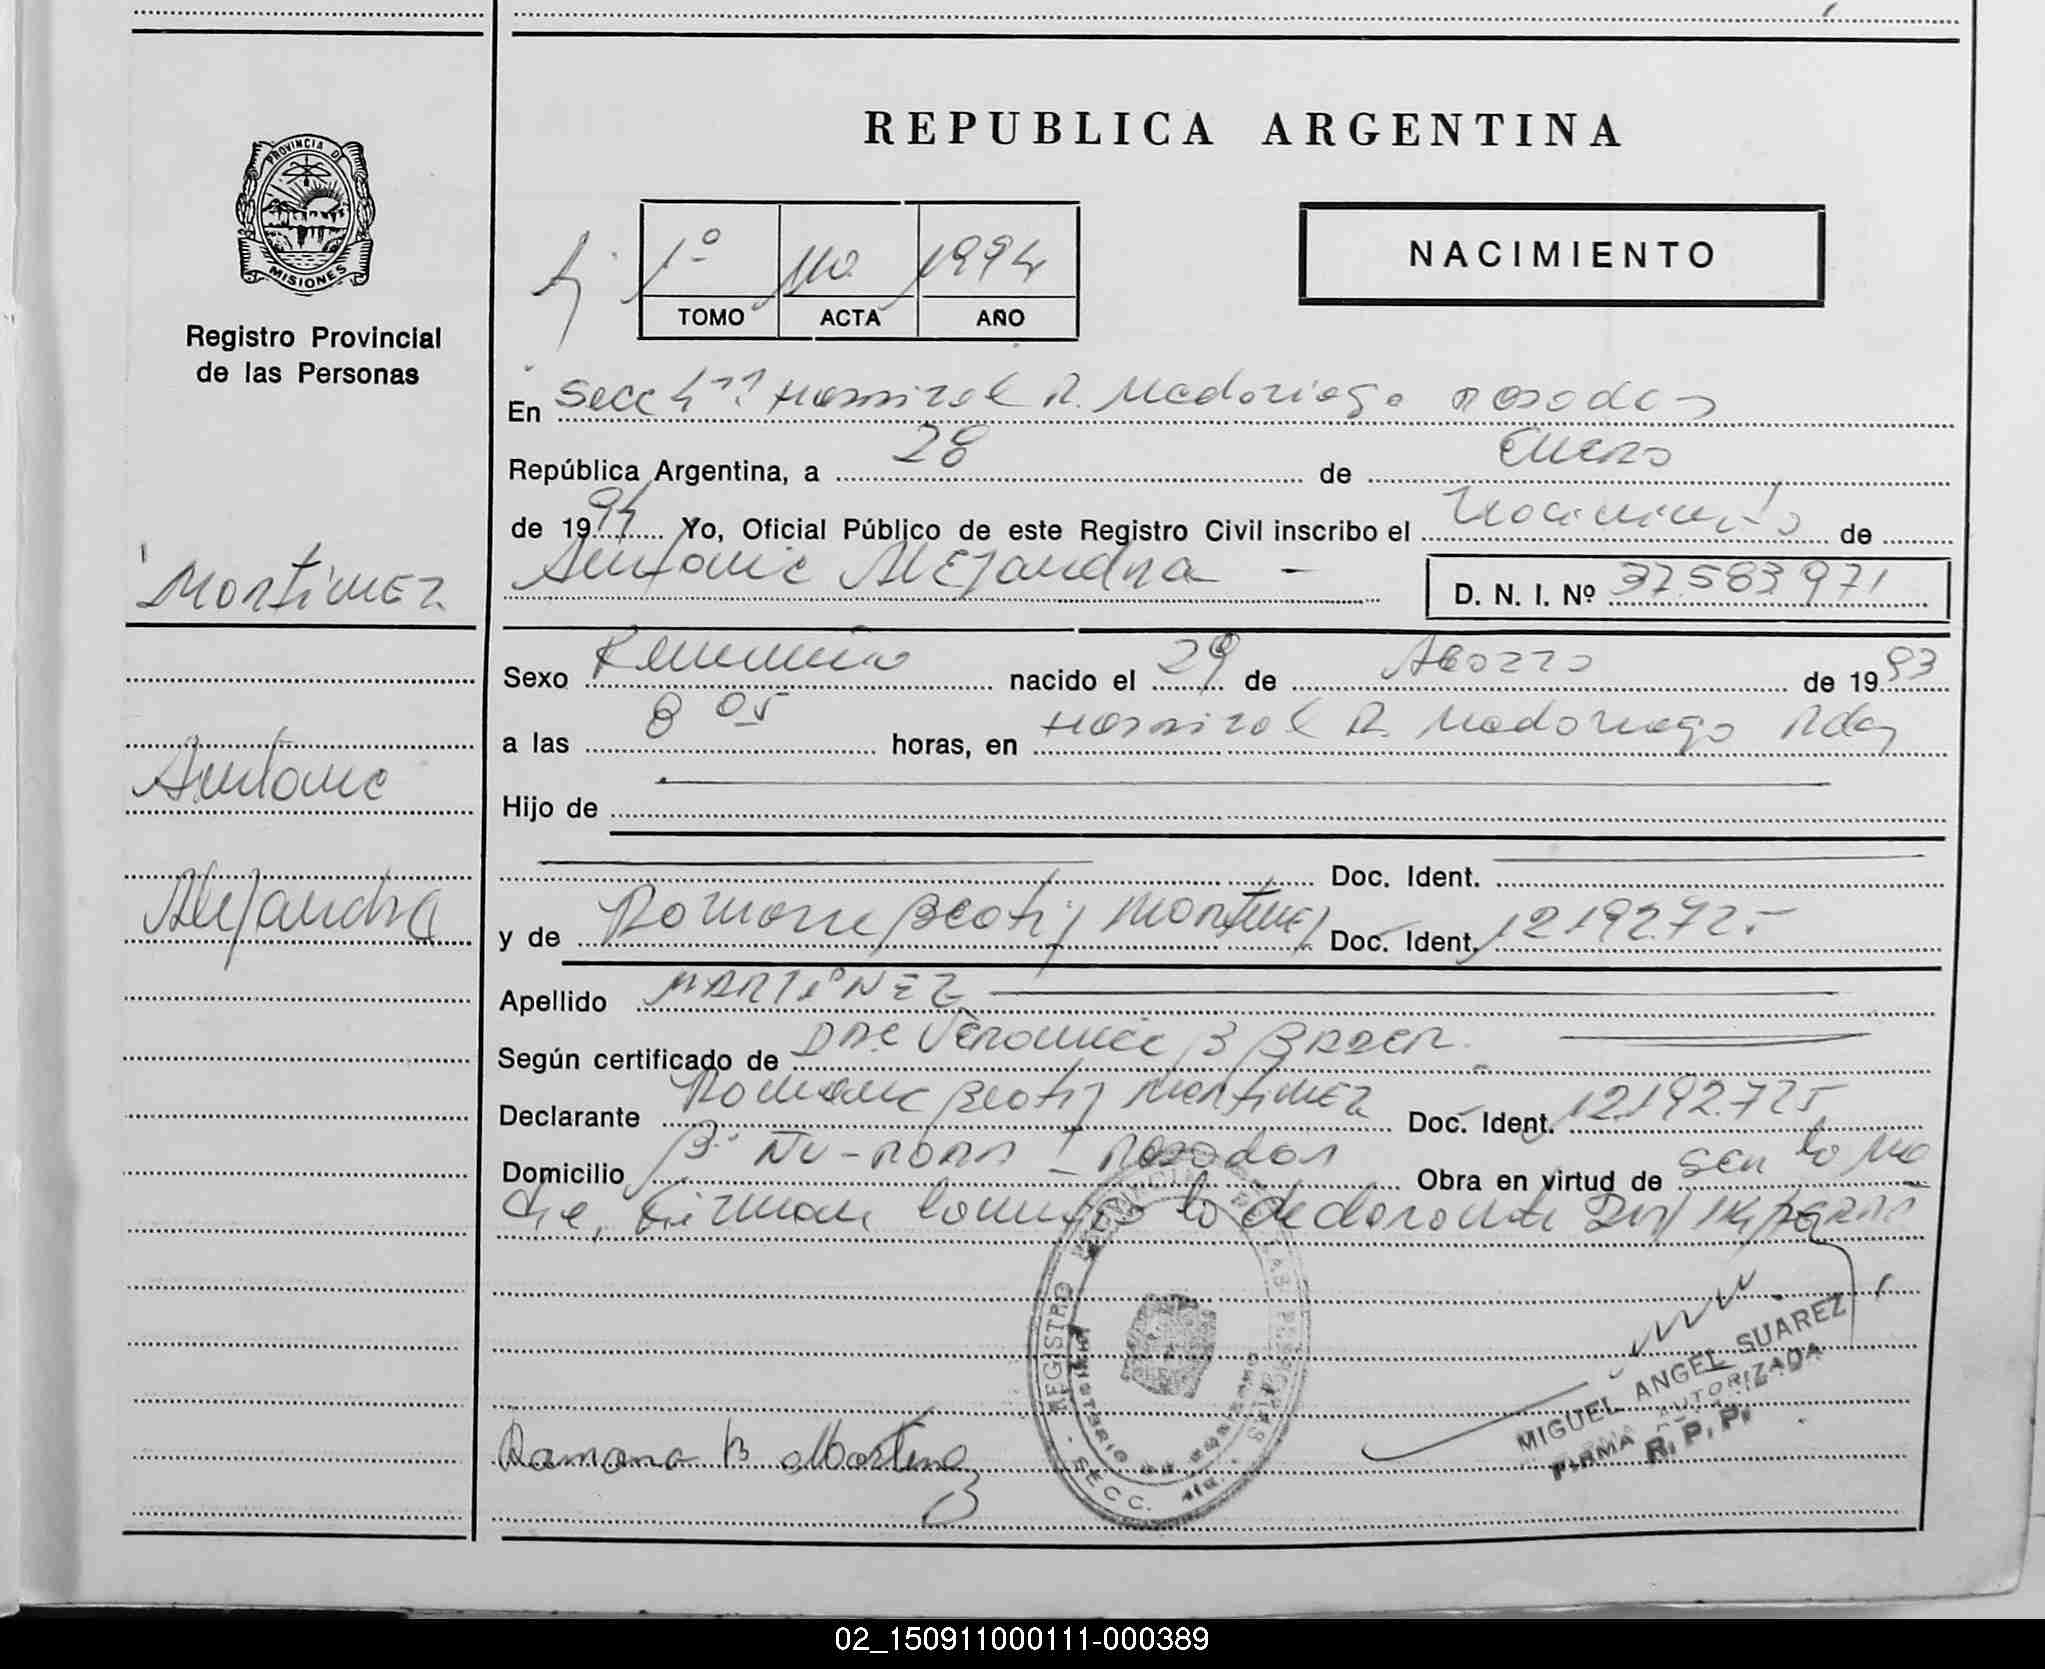 REPUBLICA ARGENTINA
PROVINCIA DE
MISIONES
Registro Provincial
de las Personas
1º 110 1994
TOMO ACTA AÑO
NACIMIENTO
En Secc 4ta Hospital R. Madariaga Posadas
República Argentina, a 28 de Enero
de 1994 Yo, Oficial Público de este Registro Civil inscribo el Nacimiento de
Antonia Alejandra - D. N. I. Nº 37.583.971
Martinez
Sexo Femenino nacido el 29 de Agosto de 1993
a las 8 05 horas, en Hospital R. Madariaga Pdas
Antonia
Hijo de
Doc. Ident.
Alejandra
y de Ramona Beatriz Martinez Doc. Ident. 12.192.725
Apellido MARTINEZ
Según certificado de Dra Veronica B
Declarante Ramona Beatriz Martinez Doc. Ident. 12.192.725
Domicilio Bº Ñu-Pora - Posadas Obra en virtud de ser la ma
dre, Firman conmigo la declarante
REGISTRO PROVINCIAL DE LAS PERSONAS
MINISTERIO DE GOBIERNO
SECC.
MIGUEL ANGEL SUAREZ
FIRMA AUTORIZADA
R. P. P.
Ramona B Martinez
02_150911000111-000389